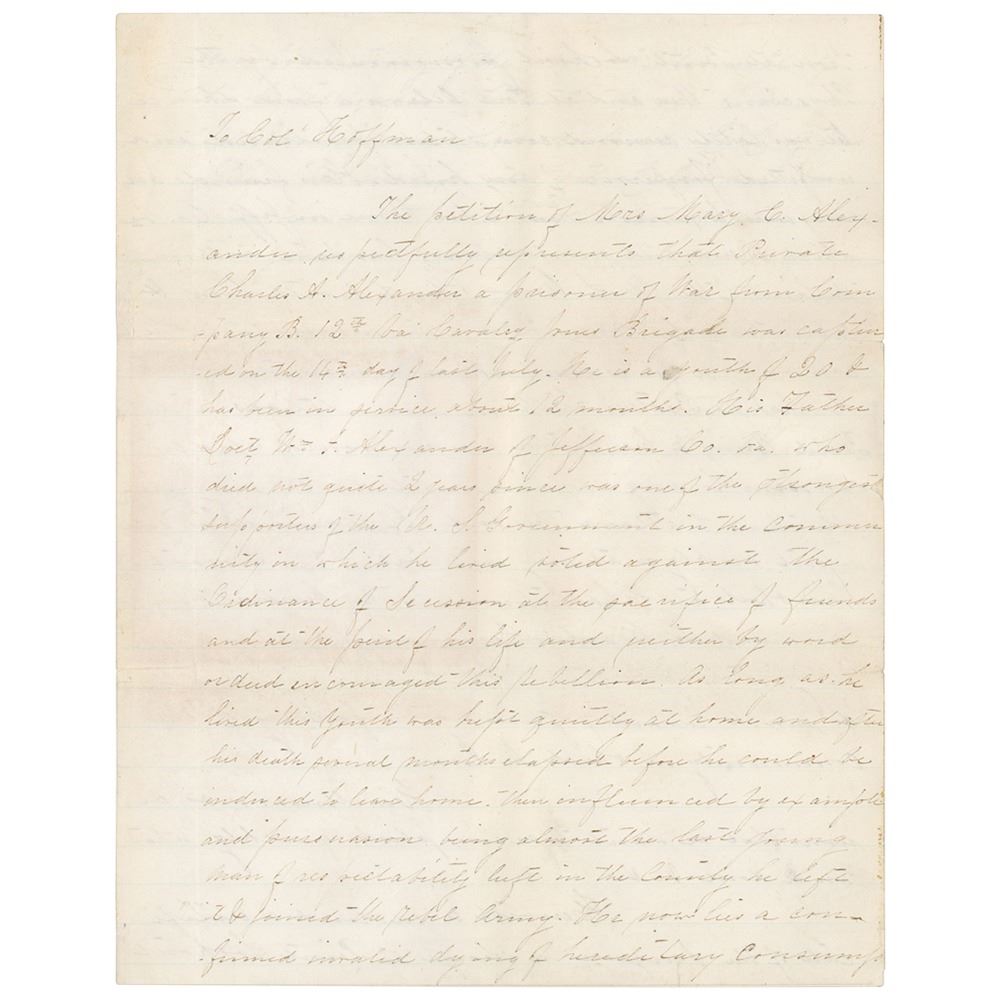 To Col Hoffman
The petition of Mrs Mary C. Alex-
ander respectfully represents that Private
Charles A. Alexander a prisoner of War from Com
-pany B. 12th Va Cavalry Jones Brigade was captur
-ed on the 14th day of last July. He is a youth of 20 &
has been in service about 12 months. His Father
Doct Wm F. Alexander of Jefferson Co. Va. who
died not quite 2 years since was one of the strongest
supporters of the U. S Government in the commu
nity in which he lived voted against the
Ordinance of Secession at the sacrifice of friends
and at the peril of his life and neither by word
or deed encouraged this rebellion. As long as he
lived this youth was kept quietly at home and after
his death several months elapsed before he could be
induced to leave home. then influenced by example
and pursuasion being almost the last young
man of respectability left in the County he left
it & joined the rebel Army. He now lies a con-
-firmed invalid dying of hereditary Consump